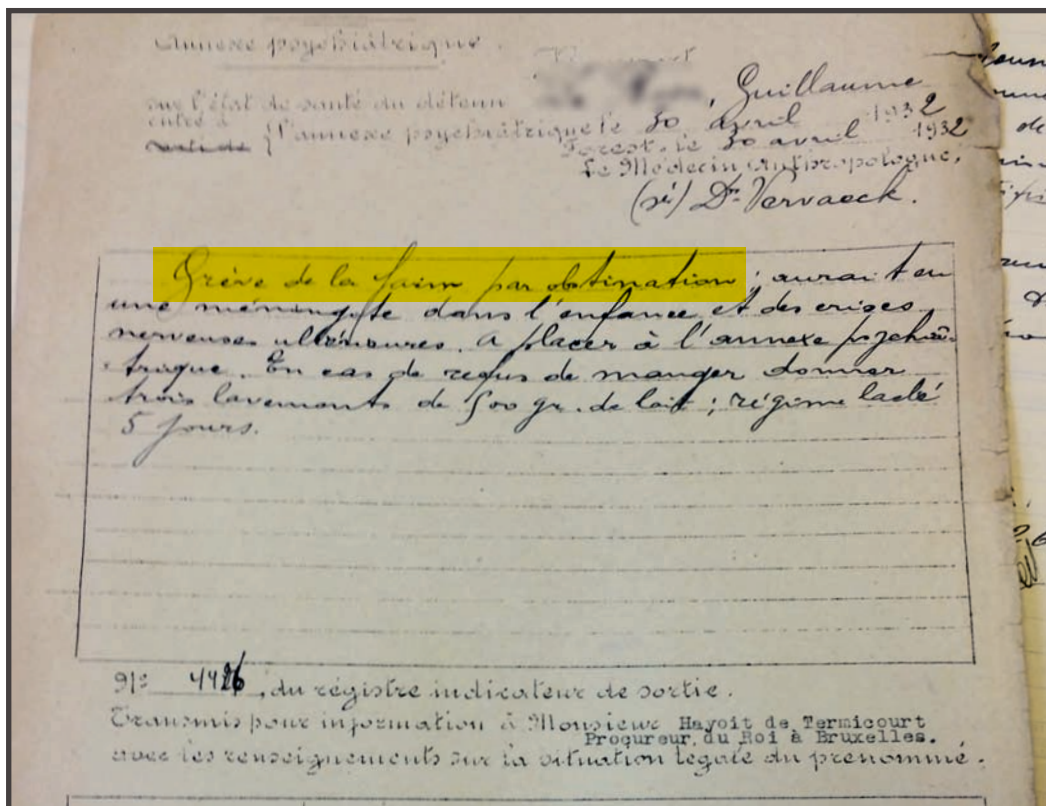 Annexe psychiatrique.
sur l'état de santé du détenu , Guillaume
entré à
sorti de { l'annexe psychiatrique le 30 avril 1932
Forest, le 30 avril 1932
Le Médecin Anthropologue,
(sé) Dr Vervaeck.
Grève de la faim par obstination ; aurait eu
une méningite dans l'enfance et des crises
nerveuses ultérieures. A placer à l'annexe psychia-
trique. En cas de refus de manger donner
trois lavements de 500 gr. de lait ; régime lacté
5 jours.
N° 4426, du régistre indicateur de sortie.
Transmis pour information à Monsieur Hayoit de Termicourt
Procureur du Roi à Bruxelles.
avec les renseignements sur la situation légale du prénommé.